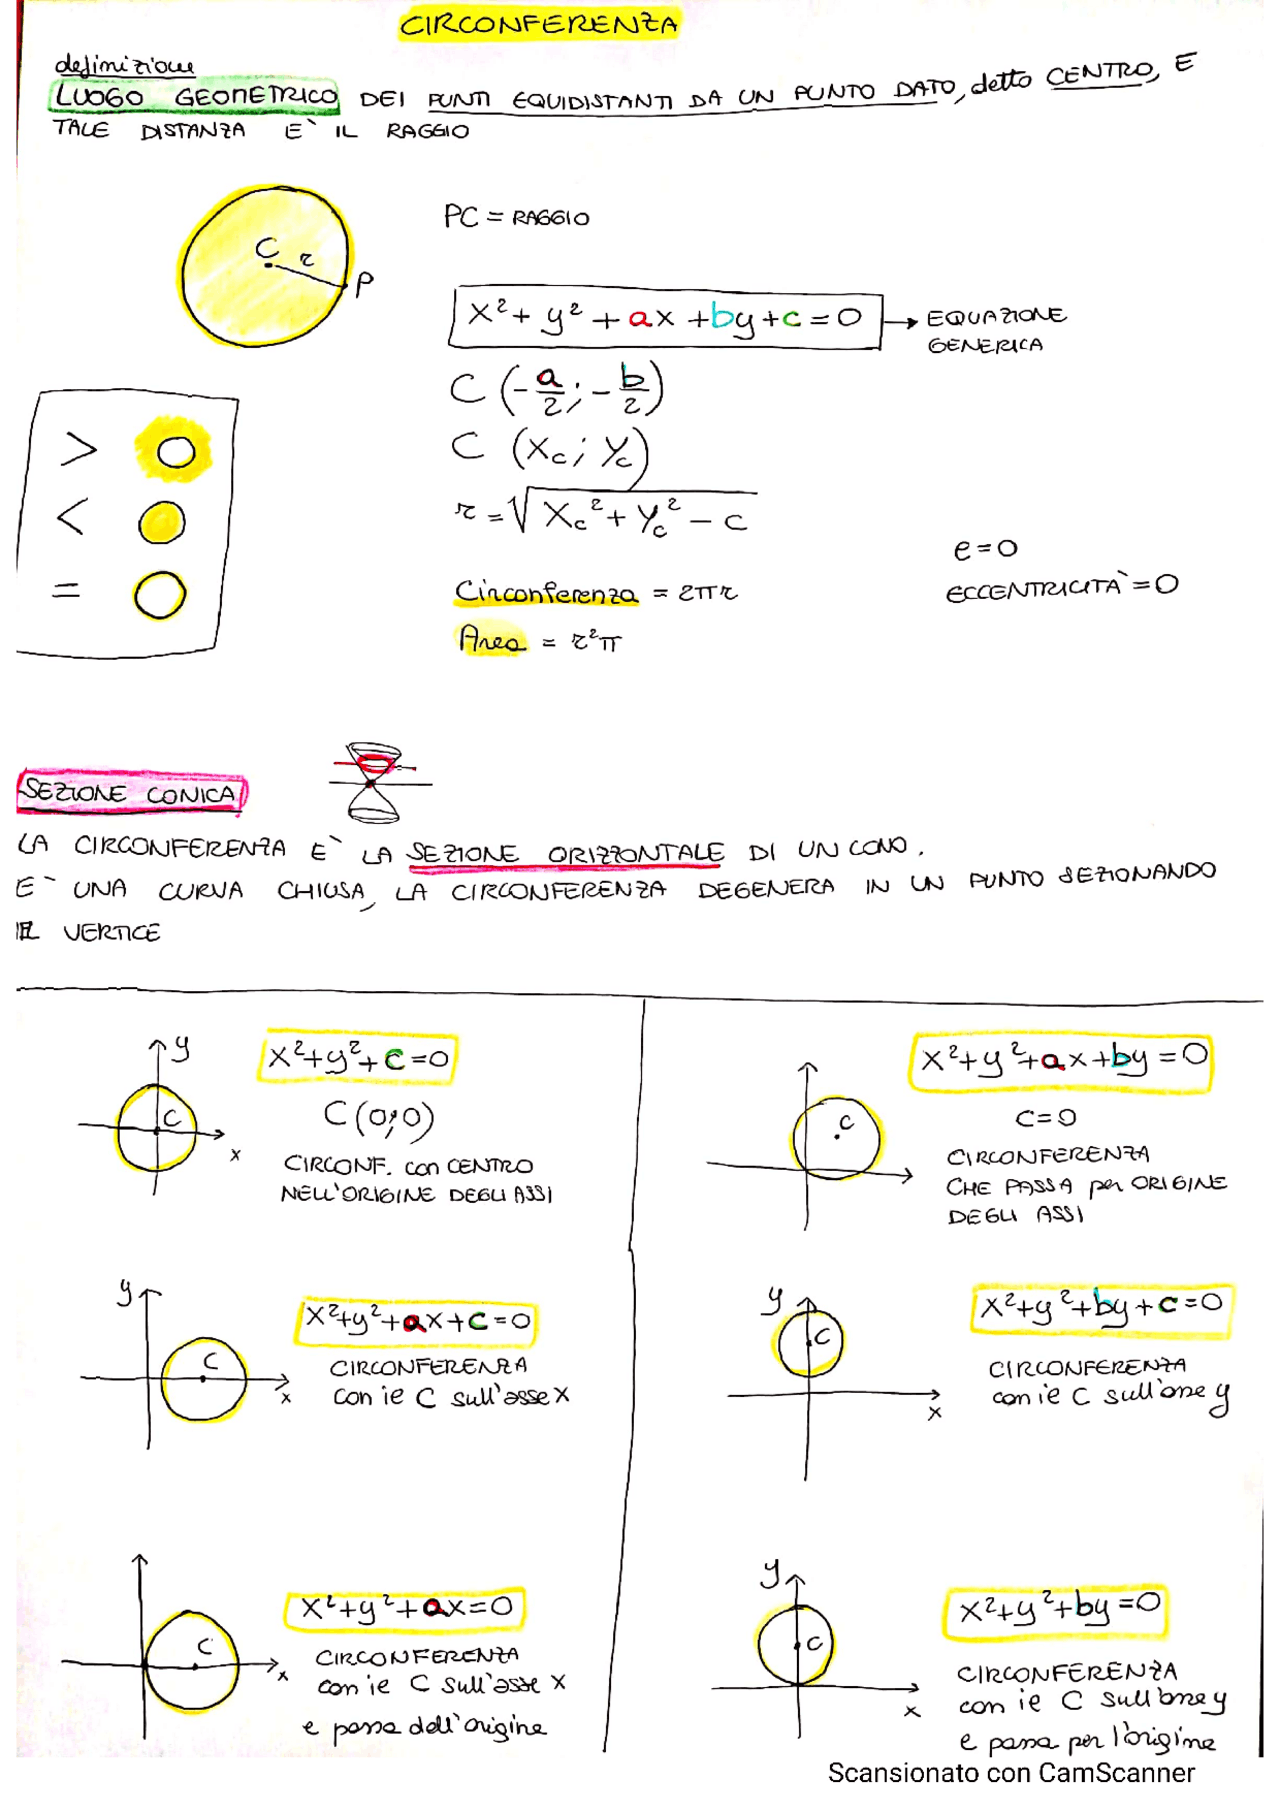 CIRCONFERENZA
definizione
LUOGO GEOMETRICO DEI PUNTI EQUIDISTANTI DA UN PUNTO DATO, detto CENTRO, E
TALE DISTANZA E` IL RAGGIO
C r P
PC = RAGGIO
x²+y²+ax+by+c=0 → EQUAZIONE
GENERICA
C (-a/2; -b/2)
C (Xc; Yc)
r = √Xc²+Yc²-c
>
<
=
e=0
ECCENTRICITÀ=0
Circonferenza = 2πr
Area = r²π
SEZIONE CONICA
LA CIRCONFERENZA E` LA SEZIONE ORIZZONTALE DI UN CONO.
E` UNA CURVA CHIUSA, LA CIRCONFERENZA DEGENERA IN UN PUNTO SEZIONANDO
IL VERTICE
y C x
x²+y²+c=0
C(0;0)
CIRCONF. con CENTRO
NELL'ORIGINE DEGLI ASSI
C
x²+y²+ax+by=0
C=0
CIRCONFERENZA
CHE PASSA per ORIGINE
DEGLI ASSI
y C x
x²+y²+ax+c=0
CIRCONFERENZA
con il C sull'asse x
y C x
x²+y²+by+c=0
CIRCONFERENZA
con il C sull'asse y
C x
x²+y²+ax=0
CIRCONFERENZA
con il C sull'asse x
e passa dall'origine
y C x
x²+y²+by=0
CIRCONFERENZA
con il C sull'asse y
e passa per l'origine
Scansionato con CamScanner